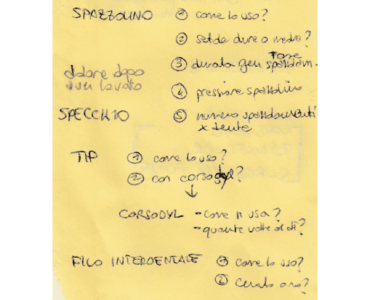 SPAZZOLINO ① come lo uso?
② setola dura o media?
③ durata gen spazzolin.
dolore dopo
④ pressione spazzolino
SPECCHIO ⑤ numero spazzolamenti
x dente
TIP ① come lo uso?
② con corsodyl?
↓
CORSODYL - come si usa?
- quante volte al dì?
FILO INTERDENTALE ① come lo uso?
② cerato o no?